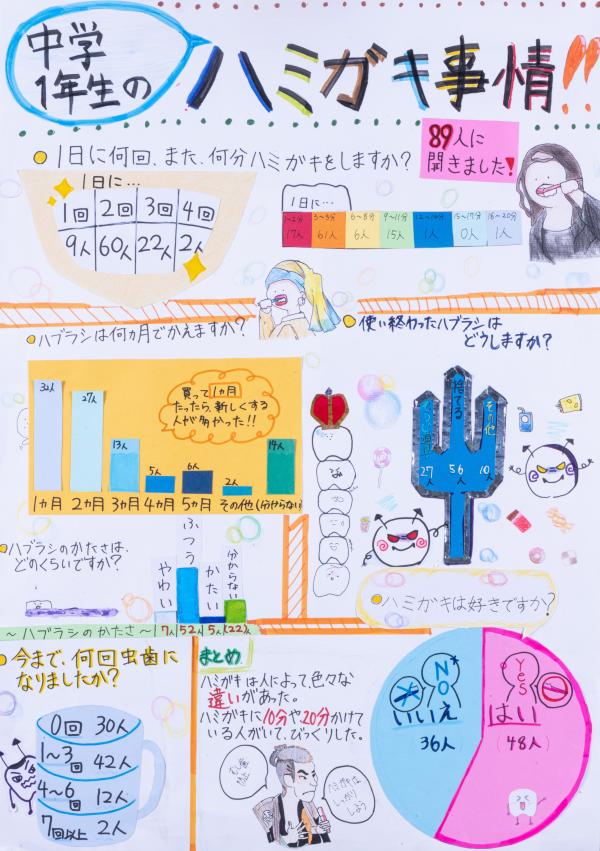 中学
1年生の
ハミガキ事情!!
1日に何回、また、何分ハミガキをしますか?
89人に
聞きました!
1日に…
1回 2回 3回 4回
9人 60人 22人 2人
1日に…
1~2分 3~5分 6~8分 9~11分 12~14分 15~17分 18~20分
17人 61人 6人 15人 1人 0人 1人
ハブラシは何ヵ月でかえますか?
使い終わったハブラシは
どうしますか?
買って1ヵ月
たったら、新しくする
人が多かった!!
32人 27人 13人 5人 6人 2人 14人
1ヵ月 2ヵ月 3ヵ月 4ヵ月 5ヵ月 その他 (分からない)
捨てる
その他
27人 56人 10人
ハブラシのかたさは、
どのくらいですか?
やわい ふつう かたい 分からない
~ハブラシのかたさ~ 7人 52人 5人 (22)人
ハミガキは好きですか?
今まで、何回虫歯に
なりましたか?
0回 30人
1~3回 42人
4~6回 12人
7回以上 2人
まとめ
ハミガキは人によって、色々な
違いがあった。
ハミガキに10分や20分かけて
いる人がいて、びっくりした。
ハミガキは
しっかり
しよう
NO
いいえ
36人
Yes
はい
(48人)